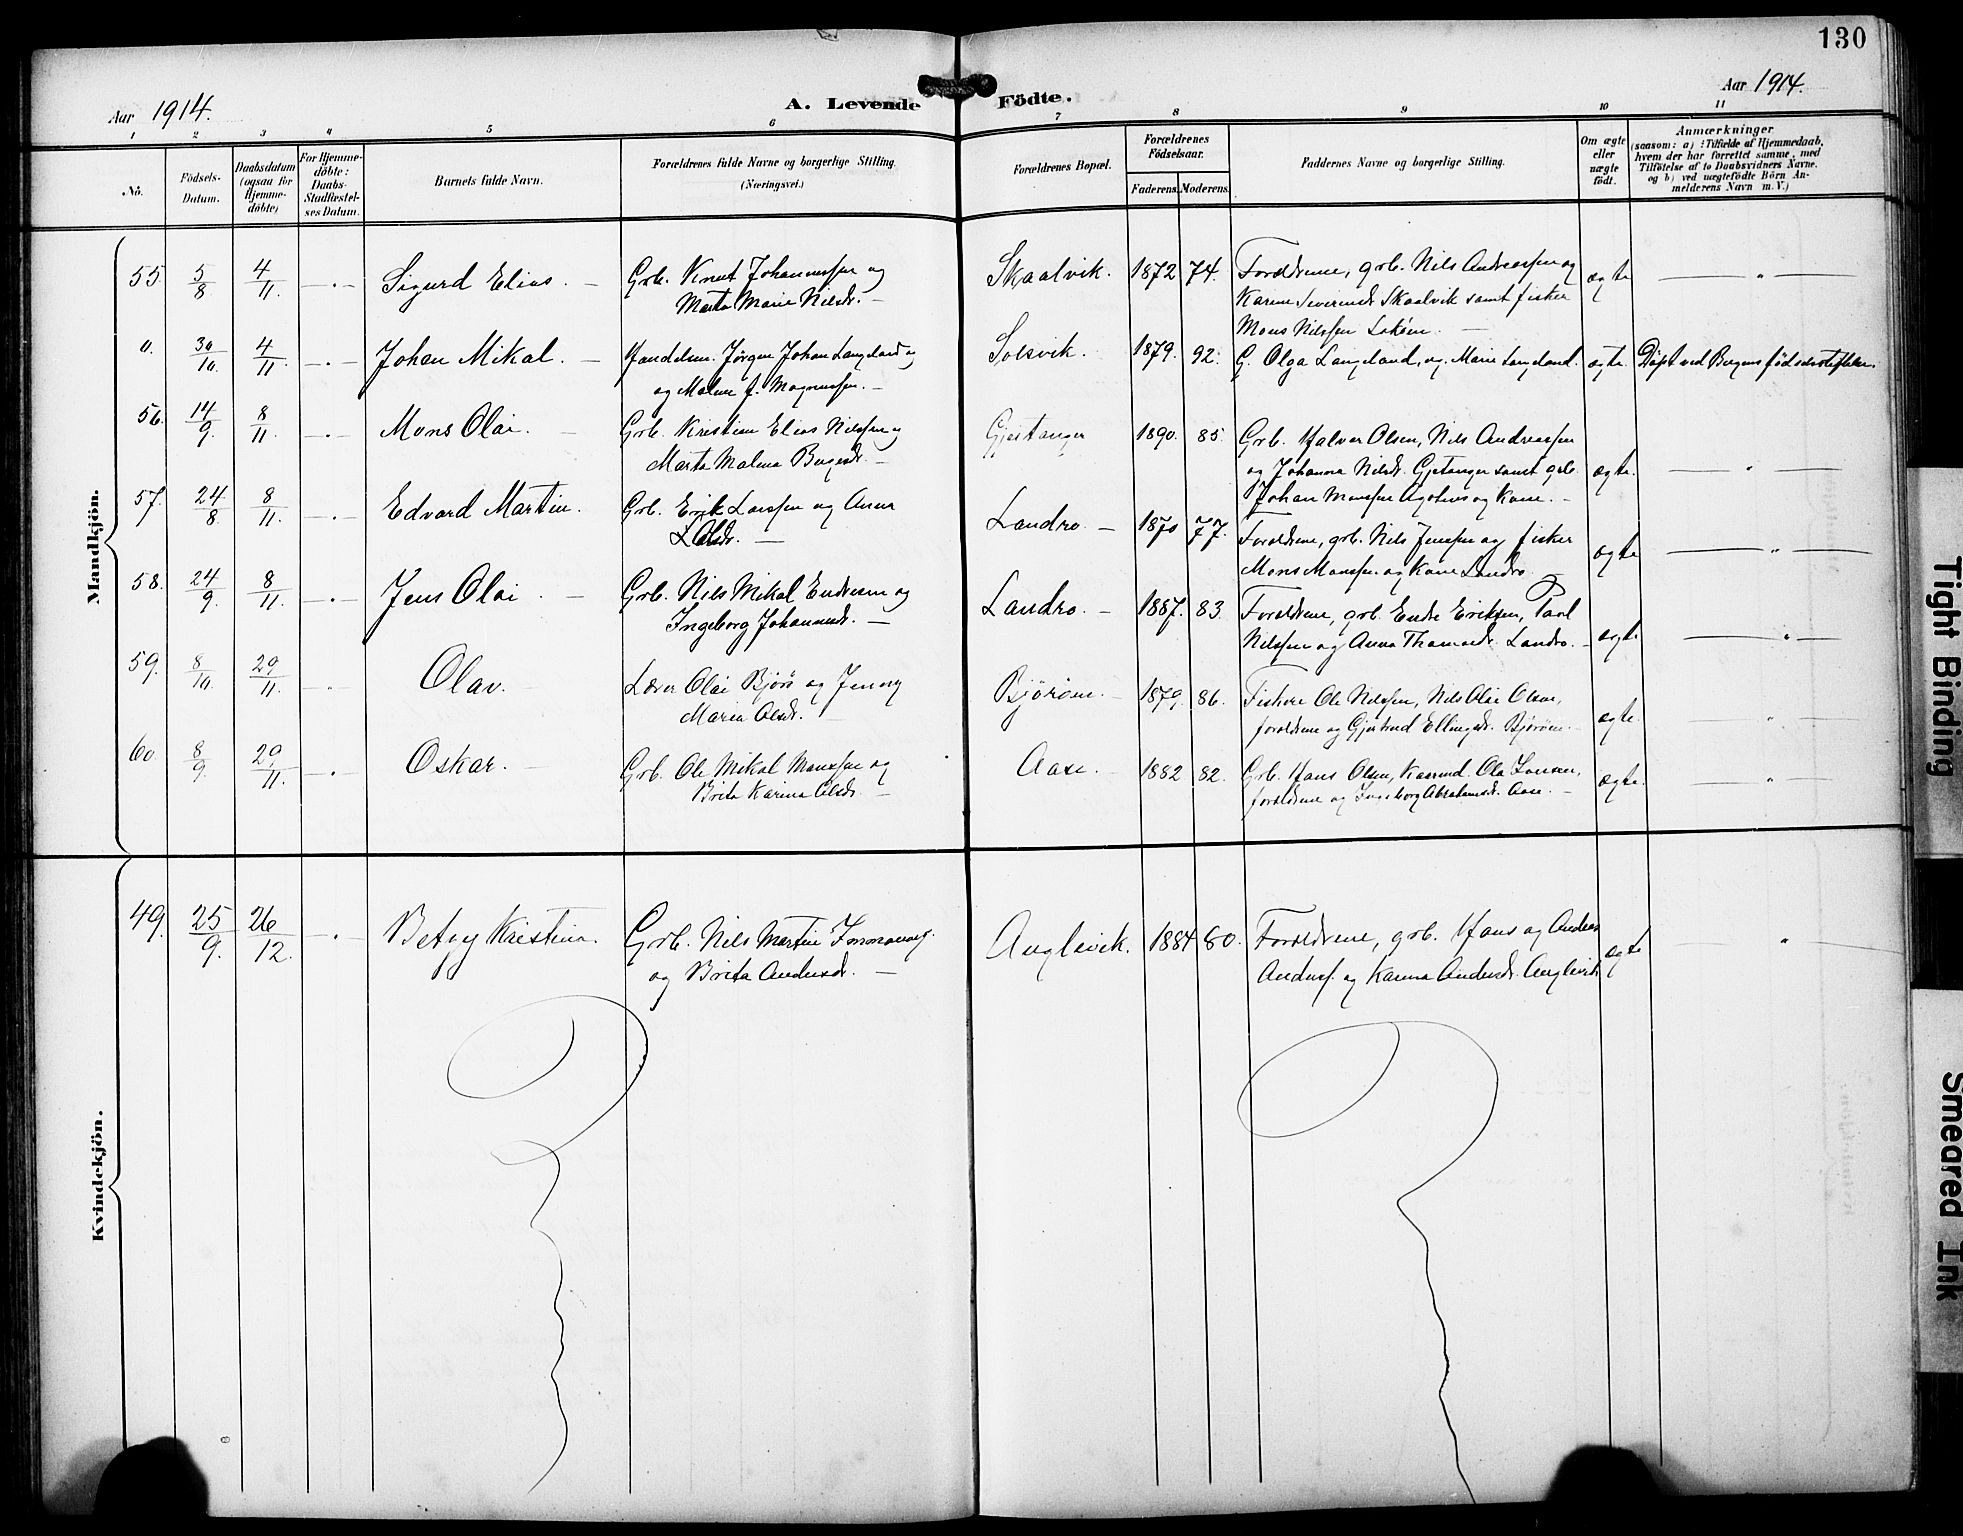 130
Aar 1914.
A. Levende Födte.
Aar 1914.
1 2 3 4 5 6 7 8 9 10 11
No.
Födsels-
Datum.
Daabsdatum
(ogsaa for
Hjemme-
döbte)
For Hjemme-
döbte:
Daabs-
Stadfæstel-
ses Datum.
Barnets fulde Navn.
Forældrenes fulde Navne og borgerlige Stilling.
(Næringsvei.)
Forældrenes Bopæl.
Forældrenes
Födselsaar.
Faderens. Moderens.
Faddernes Navne og borgerlige Stilling.
Om ægte
eller
uægte
födt.
Anmærkninger
(saasom: a) i Tilfælde af Hjemmedaab,
hvem der har forrettet samme, med
Tilföielse af to Daabsvidners Navne.
og b) ved uægtefödte Börn An-
melderens Navn m. V.)
Mandkjön.
55. 5/8. 4/11. Sigurd Elias.
Grb. Knut Johannessen og
Marta Marie Nilsdr.
Skaalvik. 1872 74.
Forældrene, grb. Nils Andreassen og
Karen Severinsdr. Skaalvik samt fisker
Mons Nilssen
ægte
0. 30/10. 4/11. Johan Mikal.
Handelsm. Jørgen Johan Langeland og
og Malene f. Magnussen.
Solsvik. 1879. 92.
G. Olga Langeland, og Marie Langeland.
ægte. Døpt ved Bergens fødselsstiftelse.
56. 14/9. 8/11. Mons Olai.
Grb. Kristian Elias Nilssen og
Marta Malena Bergesdr.
Gjestanger 1890. 85.
Grb. Halvor Olsen, Nils Andreassen
og Johanna Nilsdr. Gjetanger samt grb.
Johan Monssen og Kone.
ægte.
57. 24/8. 8/11. Edvard Martin.
Grb. Erik Larssen og Anna
Olsdr.
Landro 1870 77.
Forældrene, grb. Nils Jenssen og fisker
Mons Monssen og Kone Landro
ægte
58. 24/9. 8/11. Jens Olai
Grb. Nils Mikal Endresen og
Ingeborg Johannesdr.
Landro. 1887. 83.
Forældrene, grb. Endre Eriksen, Paul
Nilssen og Anna Thomasdr. Landro.
ægte
59. 8/10. 29/11. Olav.
Lærer Olai Bjørø og Jenny
Maria Olsdr.
Bjørøen. 1879. 86.
Fiskere Ole Nilssen, Nils Olai Olsen,
forældrene og Gjertrud Ellingsdr. Bjørøen.
ægte.
60. 8/9. 29/11. Oskar.
Grb. Ole Mikal Monssen og
Brita Karina Olsdr.
Aase. 1882 82.
Grb. Hans Olsen, Ole
forældrene og Ingeborg Abrahamsdr. Aase.
ægte.
Kvindekjön.
49. 25/9. 26/12. Betzy Kristina.
Grb. Nils Martin
og Brita Andersdr.
Anglevik. 1884 80.
Forældrene, grb. Hans og Anders
Anderss. og Karina Andersdr. Anglevik
ægte
Tight Binding
Smeared Ink